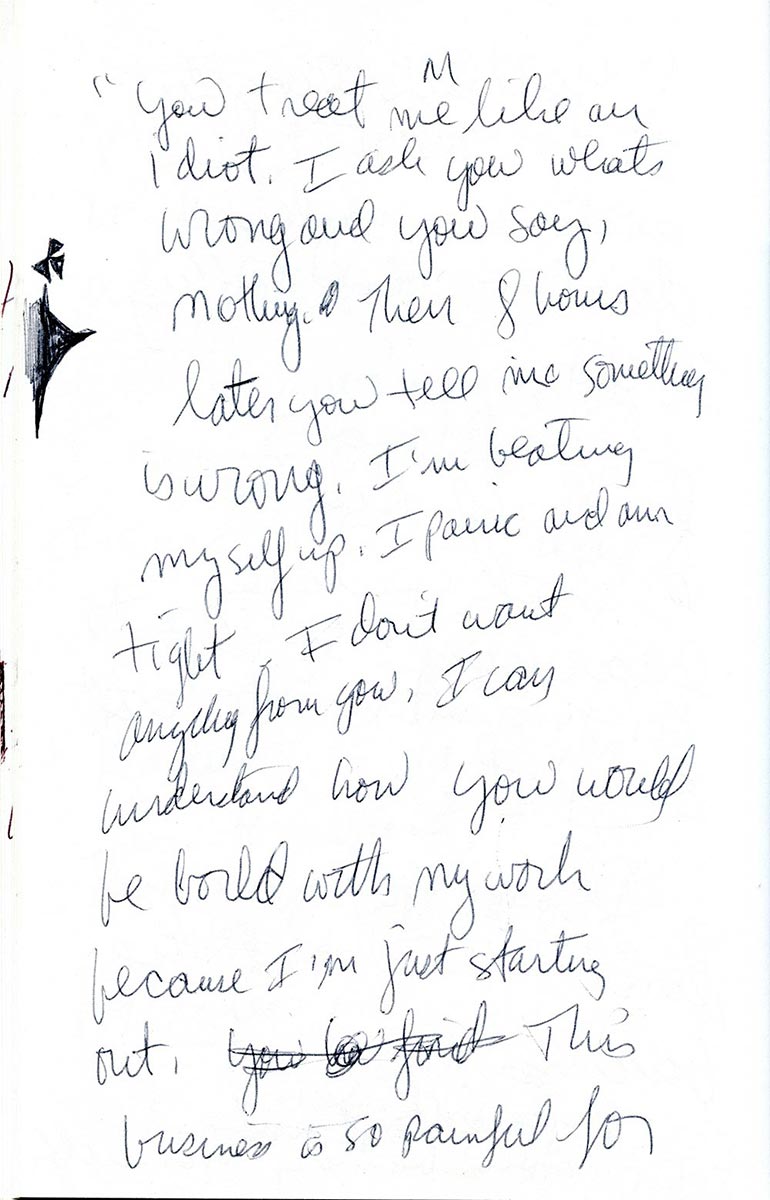 M
" You treat me like an
idiot. I ask you whats
wrong and you say,
nothing. Then 8 hours
later you tell me something
is wrong. I'm beating
myself up. I panic and am
tight. I don't want
anything from you. I can
understand how you would
be bored with my work
because I'm just starting
out. This
business is so painful for